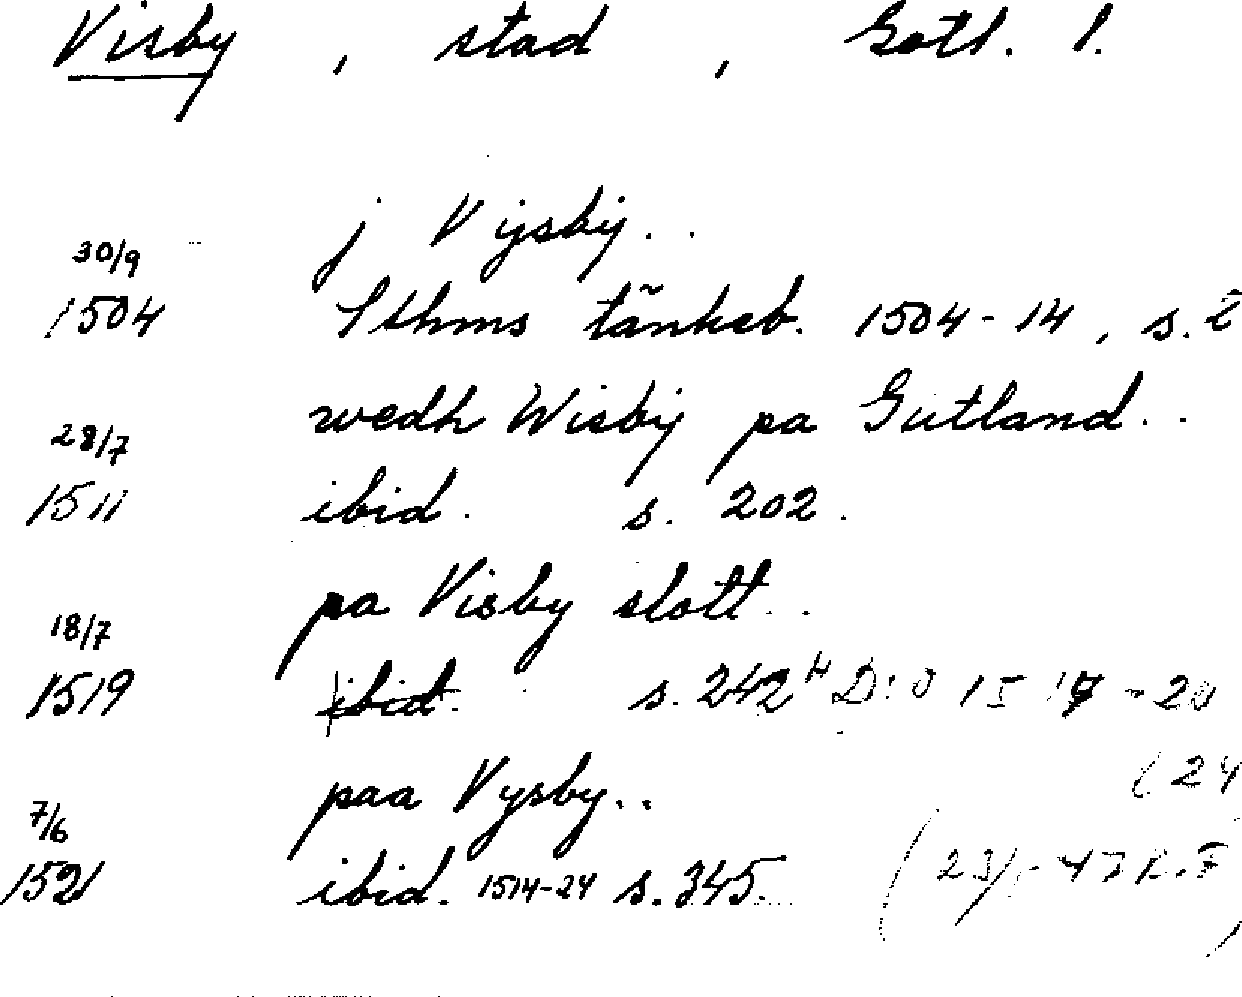 Visby, stad, Gotl. l.
j Vijsbij..
30/9
1504 Sthms tänkeb. 1504-14, s. 2
wedh Wisbij pa Gutland..
28/7
1511 ibid. s. 202.
pa Visby slott..
18/7
1519 ibid. s. 242 H D:O 15 19-20
(24
paa Vysby..
7/6
1521 ibid. 1514-24 s. 345.